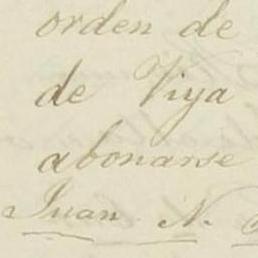 orden de
de Viya
abonarse
Juan N.